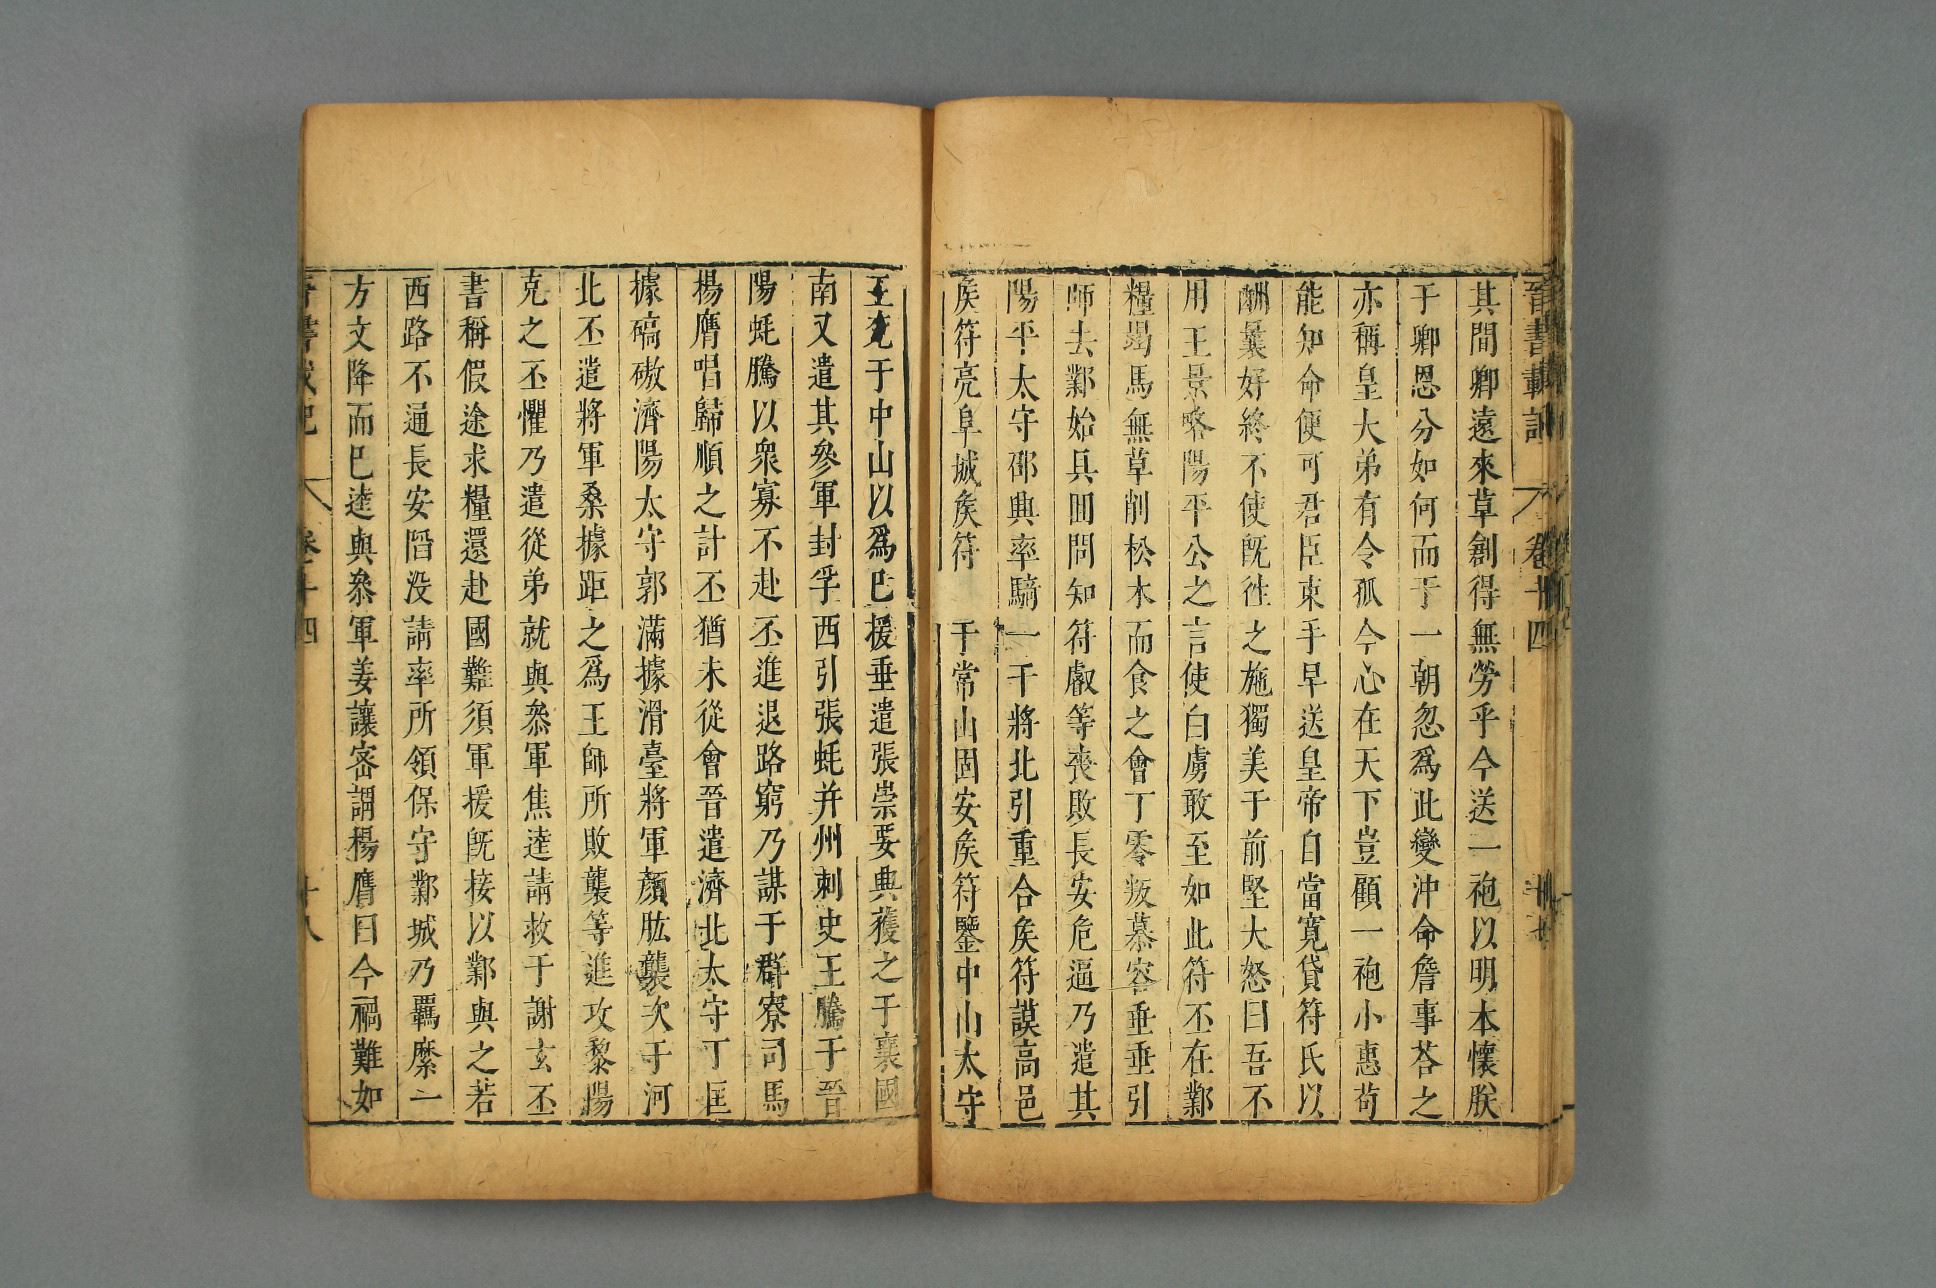 晉書載記　卷十四　十七
其間卿遠來草創得無勞乎今送一袍以明本懷朕
于卿恩分如何而于一朝忽爲此變沖命詹事荅之
亦稱皇大弟有令孤今心在天下豈顧一袍小惠苟
能知命便可君臣束手早送皇帝自當寬貸符氏以
酬曩好終不使旣徃之施獨美于前堅大怒曰吾不
用王景略陽平公之言使白虜敢至如此符丕在鄴
糧竭馬無草削松木而食之會丁零叛慕容垂垂引
師去鄴始具回問知符叡等喪敗長安危逼乃遣其
陽平太守邵興率騎一千將北引重合矦符謨高邑
矦符亮阜城矦符　于常山固安矦符鑒中山太守
王兖于中山以爲巳援垂遣張崇要興獲之于襄國
南又遣其參軍封孚西引張蚝并州刺史王騰于晉
陽蚝騰以衆寡不赴丕進退路窮乃謀于群寮司馬
楊膺唱歸順之計丕猶未從會晉遣濟北太守丁匡
據碻磝濟陽太守郭滿據滑臺將軍顏肱襲次于河
北丕遣將軍桑據距之爲王師所敗襲等進攻黎陽
克之丕懼乃遣從弟就與叅軍焦逵請救于謝玄丕
書稱假途求糧還赴國難須軍援旣接以鄴與之若
西路不通長安陷没請率所領保守鄴城乃羈縻一
方文降而巳逵與叅軍姜讓宻謂楊膺曰今禍難如
晉書載記　卷十四　十八